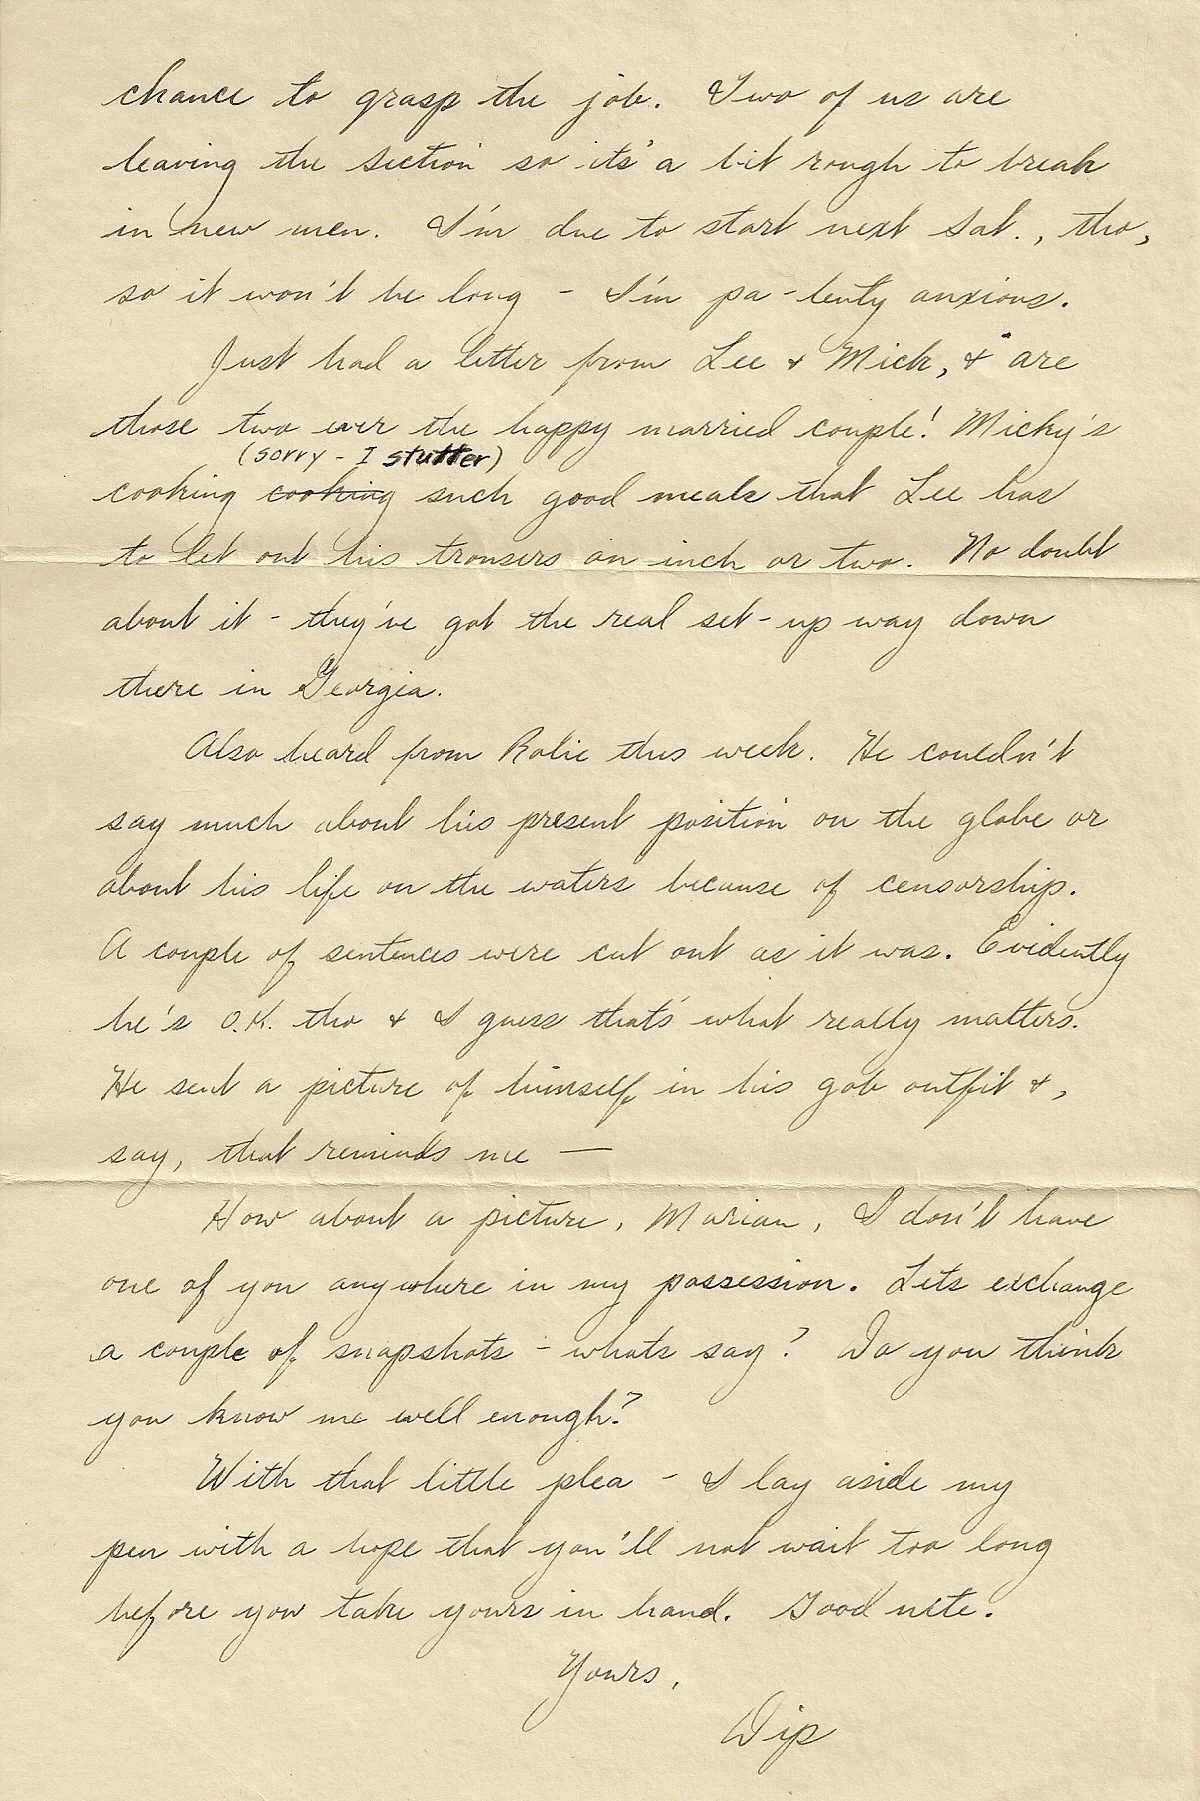 chance to grasp the job. Two of us are
leaving the section so its' a bit rough to break
in new men. I'm due to start next Sat., tho,
so it won't be long - I'm pa-lenty anxious.
Just had a letter from Lee & Mick, & are
those two ever the happy married couple! Micky's
(sorry - I stutter)
cooking cooking such good meals that Lee has
to let out his trousers an inch or two. No doubt
about it - they've got the real set-up way down
there in Georgia.
Also heard from Rolie this week. He couldn't
say much about his present position on the globe or
about his life on the waters because of censorship.
A couple of sentences were cut out as it was. Evidently
he's O.K. tho & I guess that's what really matters.
He sent a picture of himself in his gob outfit &,
say, that reminds me —
How about a picture, Marian, I don't have
one of you anywhere in my possession. Lets exchange
a couple of snapshots - whats say? Do you think
you know me well enough?
With that little plea - I lay aside my
pen with a hope that you'll not wait too long
before you take yours in hand. Good nite.
Yours,
Dip